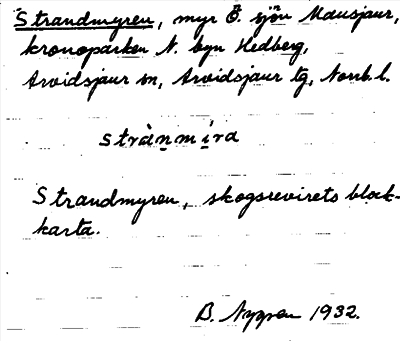 Strandmyren, myr Ö. sjön Mausjaur,
kronoparken N. byn Hedberg,
Arvidsjaur sn, Arvidsjaur tg, Norrb. l.
strànmira
Strandmyren, skogsrevirets block-
karta.
B. Nygren 1932.